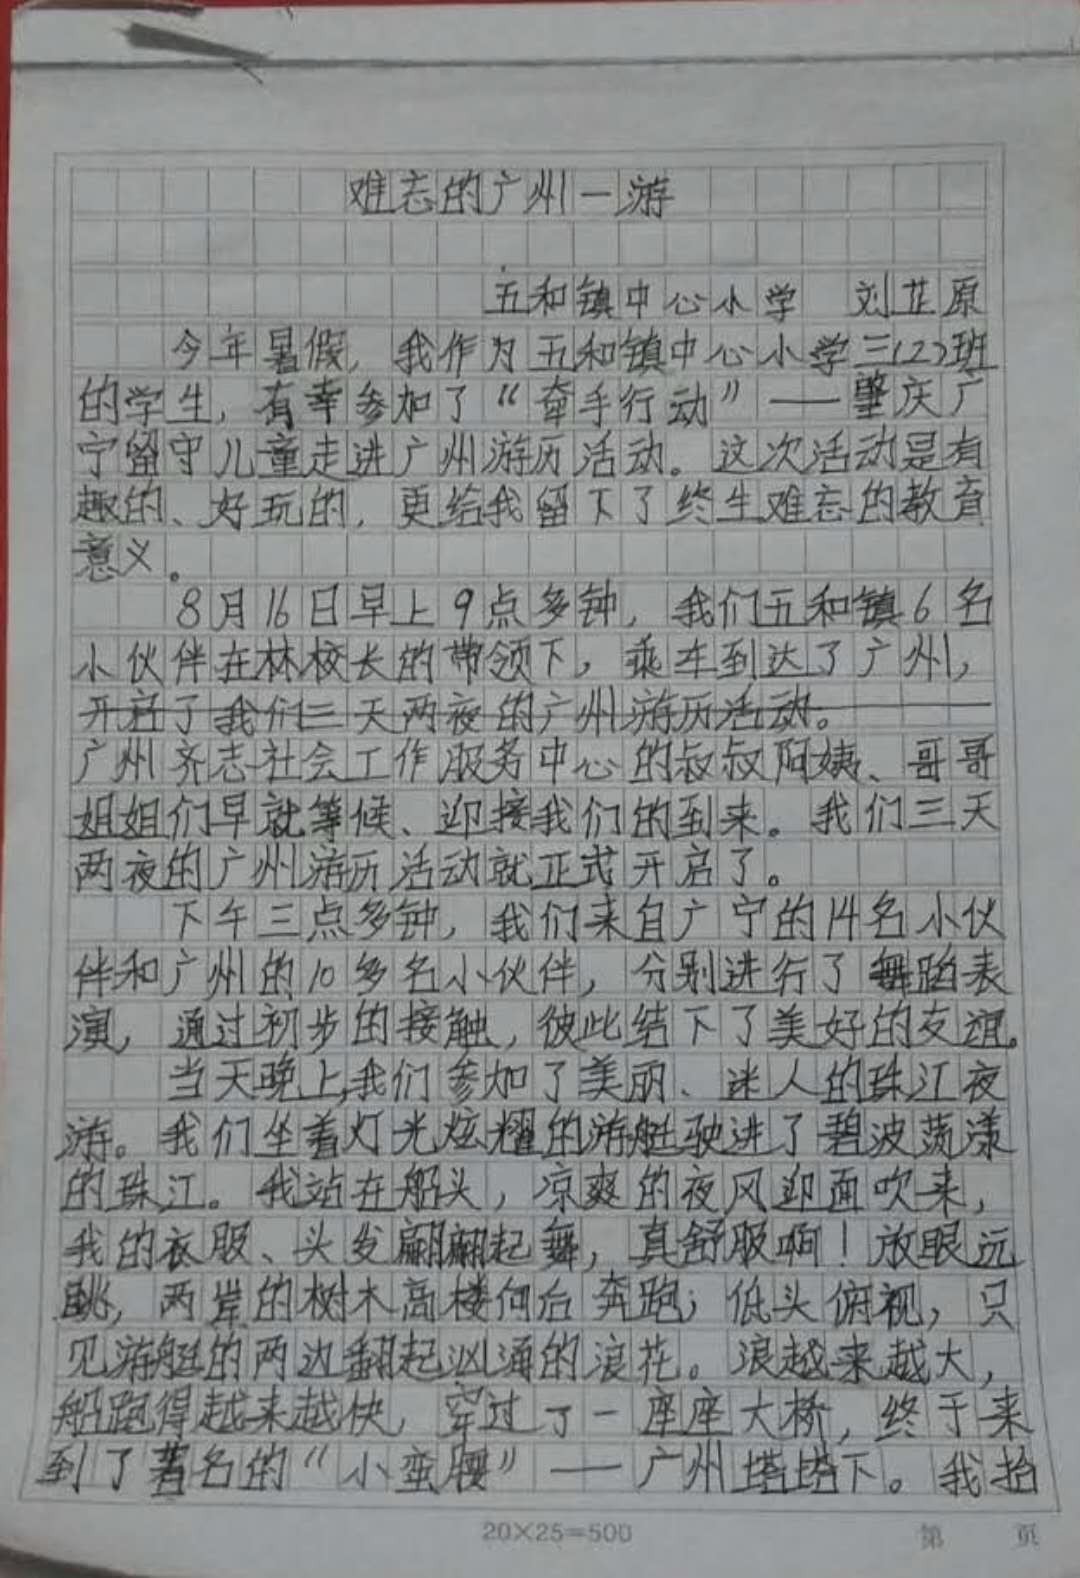 难忘的广州一游
五和镇中心小学 刘芷原
今年暑假，我作为五和镇中心小学三(2)班
的学生，有幸参加了“牵手行动”——肇庆广
宁留守儿童走进广州游历活动。这次活动是有
趣的、好玩的，更给我留下了终生难忘的教育
意义。
8月16日早上9点多钟，我们五和镇6名
小伙伴在林校长的带领下，乘车到达了广州，
开启了我们三天两夜的广州游历活动。
广州齐志社会工作服务中心的叔叔阿姨、哥哥
姐姐们早就等候、迎接我们的到来。我们三天
两夜的广州游历活动就正式开启了。
下午三点多钟，我们来自广宁的14名小伙
伴和广州的10多名小伙伴，分别进行了舞蹈表
演，通过初步的接触，彼此结下了美好的友谊。
当天晚上，我们参加了美丽、迷人的珠江夜
游。我们坐着灯光炫耀的游艇驶进了碧波荡漾
的珠江。我站在船头，凉爽的夜风迎面吹来，
我的衣服、头发翩翩起舞，真舒服啊！放眼远
眺，两岸的树木高楼向后奔跑；低头俯视，只
见游艇的两边翻起汹涌的浪花。浪越来越大，
船跑得越来越快，穿过了一座座大桥，终于来
到了著名的“小蛮腰”——广州塔塔下。我抬
20×25=500
第 页